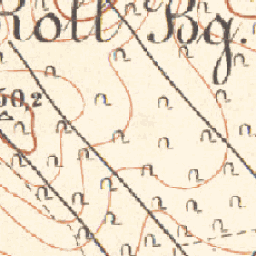 Roll Bg.
50,2